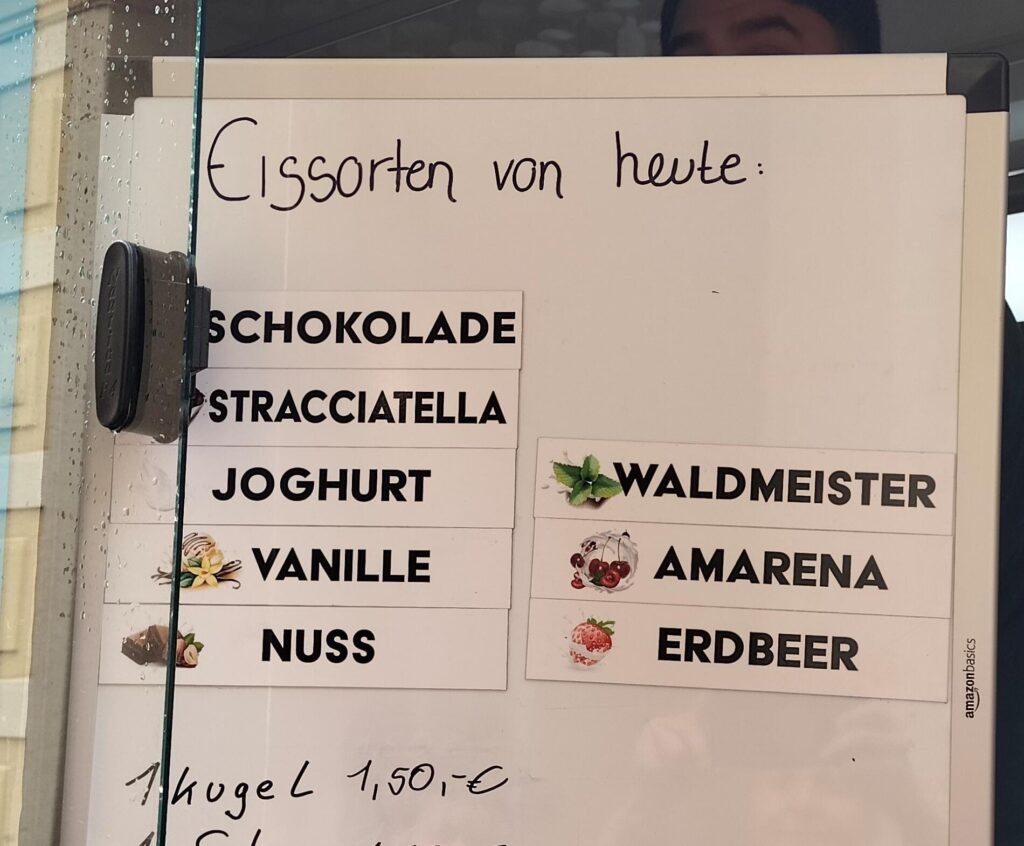 Eissorten von heute:
SCHOKOLADE
STRACCIATELLA
JOGHURT
VANILLE
NUSS
WALDMEISTER
AMARENA
ERDBEER
1 Kugel 1,50,-€
amazonbasics